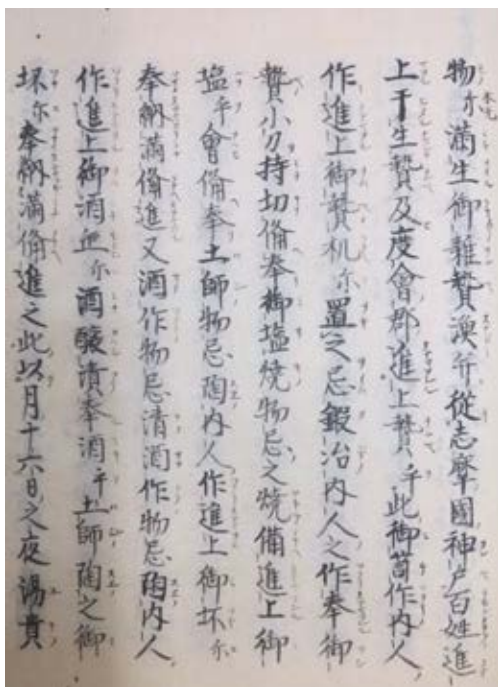 物尓満生御雑贄漁弁從志摩國神戸百姓進
上干生贄及度會郡進上贄乎此御笥作内人
作進上御贄机尓置之忌鍛冶内人之作奉御
贄小刀持切備奉御塩焼物忌之焼備進上御
塩乎會備奉土師物忌陶内人作進上御坏尓
奉納満備進又酒作物忌清酒作物忌陶内人
作進上御酒缶尓酒醸漬奉酒乎土師陶之御
坏尓奉納満備進之此以月十六日之夜湯貴